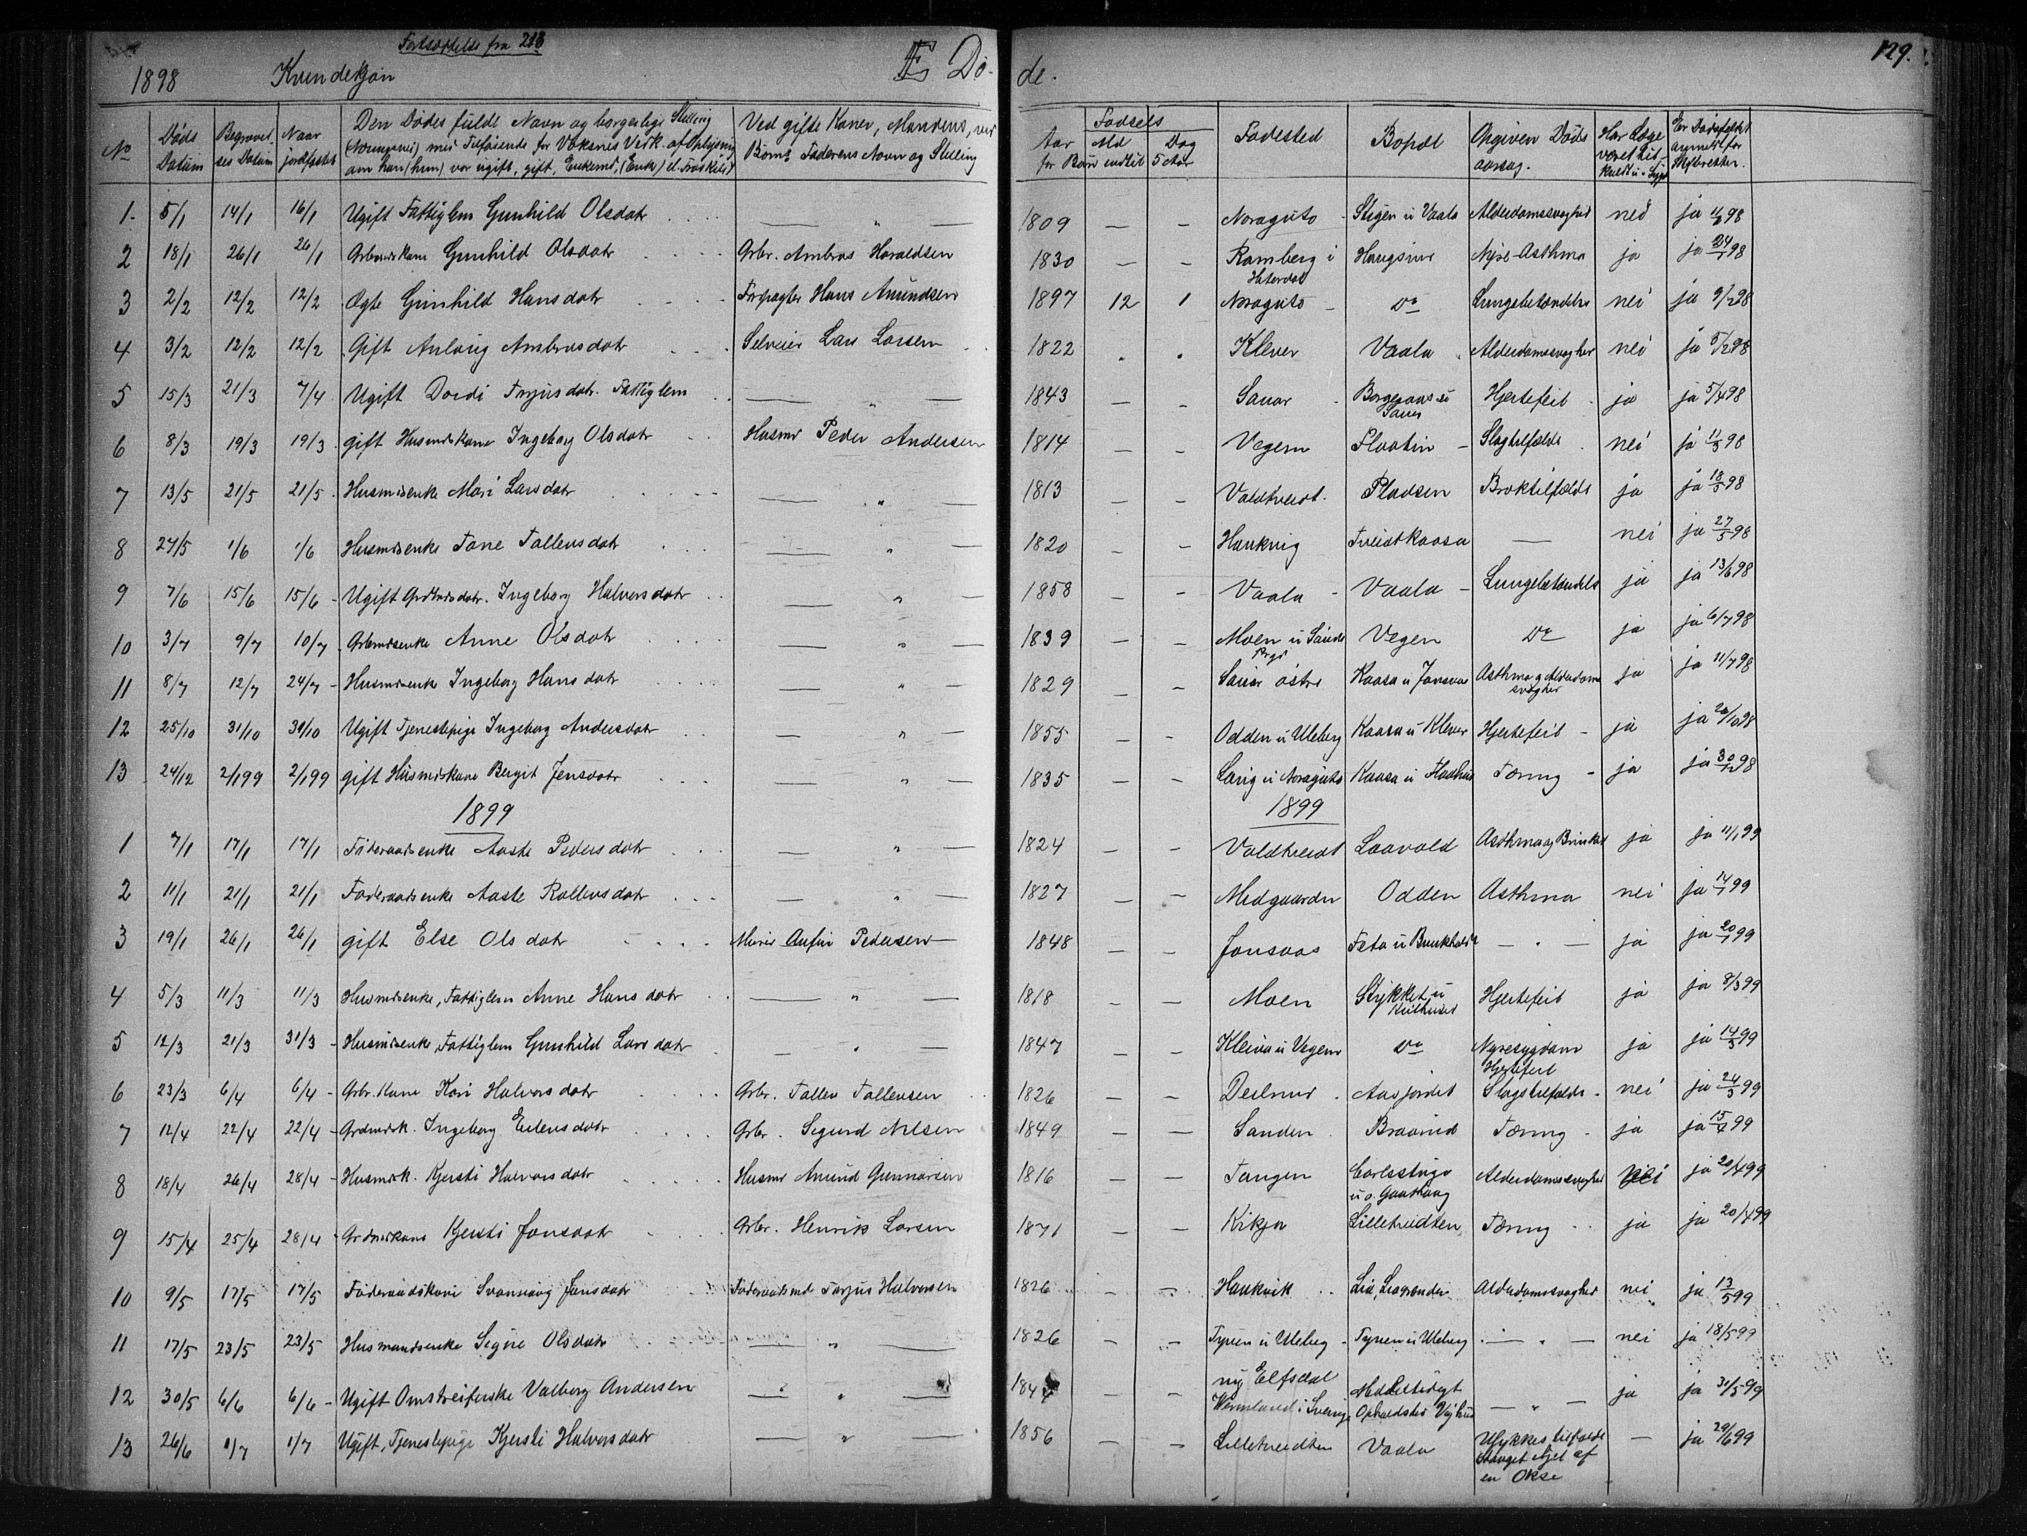 Fortsættelse fra 213
1898 Kvindekjøn E Dø- de. 129.
No Døds Datum Begravel- ses Datum Naar jordfæstet Den Dødes fulde Navn og borgerlige Stilling
om han/hun) var ugift, gift, Enkemd, (Enke) el. Fraskilt
Ved gifte Koner, Mandens, ved
Børns Faderens Navn og Stilling
Aar Fødsels Md Dag Fødested Bopæl Opgiven Døds aarsag.
for Børn indtil 5 Aar
1. 5/1 14/1 16/1 Ugift Fattiglem Gunhild Olsdatr — " — 1809 — — Noraguto Stigen u Vaala Alderdomssvaghed nei ja 98
2 18/1 26/1 26/1 Arbmdskone Gunhild Olsdatr Arbr. Ambros Haraldsen 1830 — — Ramberg i Hiterdal Haugsmr Nyre-Asthma ja ja 24/1 98
3 2/2 12/2 12/2 Ægte Gunhild Hansdatr Forpagter Hans Amundsen 1897 12 1 Noraguto Do Lungebetændelse nei ja 9/2 98
4 3/2 12/2 12/2 Gift Anlaug Ambrosdatr Selveier Lars Larsen 1822 " " Klever Vaala Alderdomssvaghed nei ja 5/2 98
5 15/3 21/3 7/4 Ugift Dordi Torjusdatr. Fattiglem — " — 1843 — — Sauar Borgeaas u Sauar Hjertefeil ja ja 5/4 98
6 8/3 19/3 19/3 gift Husmdskone Ingeborg Olsdatr Husmd Peder Andersen 1814 — — Vegem Flaatin Slagtilfælde nei ja 11/3 98
7 13/5 21/5 21/5 Husmdsenke Mari Larsdatr — " — 1813 — — Valdtveidt Pladsen Broktilfælde ja ja 18/5 98
8 24/5 1/6 1/6 Husmdsenke Tone Tallevsdatr — " — 1820 — — Haukvig Tveidtkaasa — nei ja 27/5 98
9 7/6 15/6 15/6 Ugift Grdbrdsdatr. Ingeborg Halvorsdatr — " — 1858 — — Vaala Vaala Lungebetændelse ja ja 13/6 98
10 3/7 9/7 10/7 Arbmdsenke Anne Olsdatr — " — 1839 — — Moen u Sande Prgd Vegen Do ja ja 6/7 98
11 8/7 12/7 24/7 Husmdsenke Ingeborg Hansdatr — " — 1829 — — Sauar østre Kaasa u Jonsaas Asthma og Alderdoms svaghed ja ja 11/7 98
12 25/10 31/10 31/10 Ugift Tjenestepige Ingeborg Andersdatr — " — 1855 — — Odden u Uleberg Kaasa u Klever Hjertefeil ja ja 98
13 24/12 2/1 99 2/1 99 gift Husmdskone Bergit Jensdatr — " — 1835 — — Lauig u Noraguto Kaasa u Tæring ja ja 30/12 98
1899 1899
1 7/1 17/1 17/1 Føderaadsenke Aaste Pedersdatr — " — 1824 — — Valdtveidt Laavald Asthma og ja ja 11/1 99
2 11/1 21/1 21/1 Føderaadsenke Aaste Rollevsdatr — " — 1827 — — Midgaarden Odden Asthma nei ja 14/1 99
3 19/1 26/1 26/1 gift Else Olsdatr Murer Anfin Pedersen 1848 — — Jonsaas — " — ja ja 20/1 99
4 5/3 11/3 11/3 Husmdsenke, Fattiglem Anne Hansdatr — " — 1818 — — Moen Stykket u Hjertefeil ja ja 8/3 99
5 12/3 21/3 31/3 Husmdsenke, Fattiglem Gunhild Larsdatr — " — 1847 — — Kleiva u Vegem Do Nyresygdom Hjertefeil ja ja 14/3 99
6 23/3 6/4 6/4 Arbr. Kone Kari Halvorsdatr Arbr. Tallev Tallevsen 1826 — — Aasjordet Slagtilfælde nei ja 24/3 99
7 12/4 22/4 22/4 Grdmdsk. Ingeborg Eilevsdatr Grbr. Sigurd Nilsen 1849 — — Sanden Tæring ja ja 15/4 99
8 18/4 26/4 28/4 Husmdsk. Kjersti Halvorsdatr Husmd Amund Gunnarsen 1816 — — Tangen Carlsstugo Alderdomssvaghed nei ja 20/4 99
9 15/4 25/4 28/4 Grdmdskone Kjersti Jonsdatr Grbr. Henrik Larsen 1871 — — Kikja Lilletveidten Tæring ja ja 20/4 99
10 9/5 17/5 17/5 Føderaadskone Svanaug Jonsdatr Føderaadsmd Torjus Halvorsen 1826 — — Haukvik Lia, Liagrenden Alderdomssvaghed nei ja 13/5 99
11 17/5 23/5 23/5 Husmandsenke Signe Olsdatr — " — 1826 — — Tyven u Uleberg Tyven u Uleberg — " — nei ja 18/5 99
12 30/5 6/6 6/6 Ugift Omstreiferske Valborg Andersen — " — — — ny Elfsdal Wermland i Sverige Middeltidigt Opholdsted — " — ja ja 31/5 99
13 26/6 1/7 1/7 Ugift, Tjenestepige Kjersti Halvorsdatr — " — 1856 — — Lilletveidten Vaala Ulykkestilfælde Stanget ihjel af en Okse — ja 29/6 99